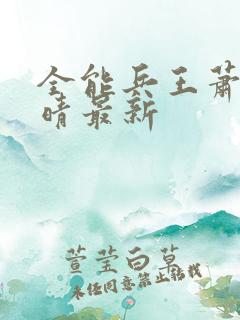 全能兵王萧
晴最新
萱莹白草
未经同意禁止转载